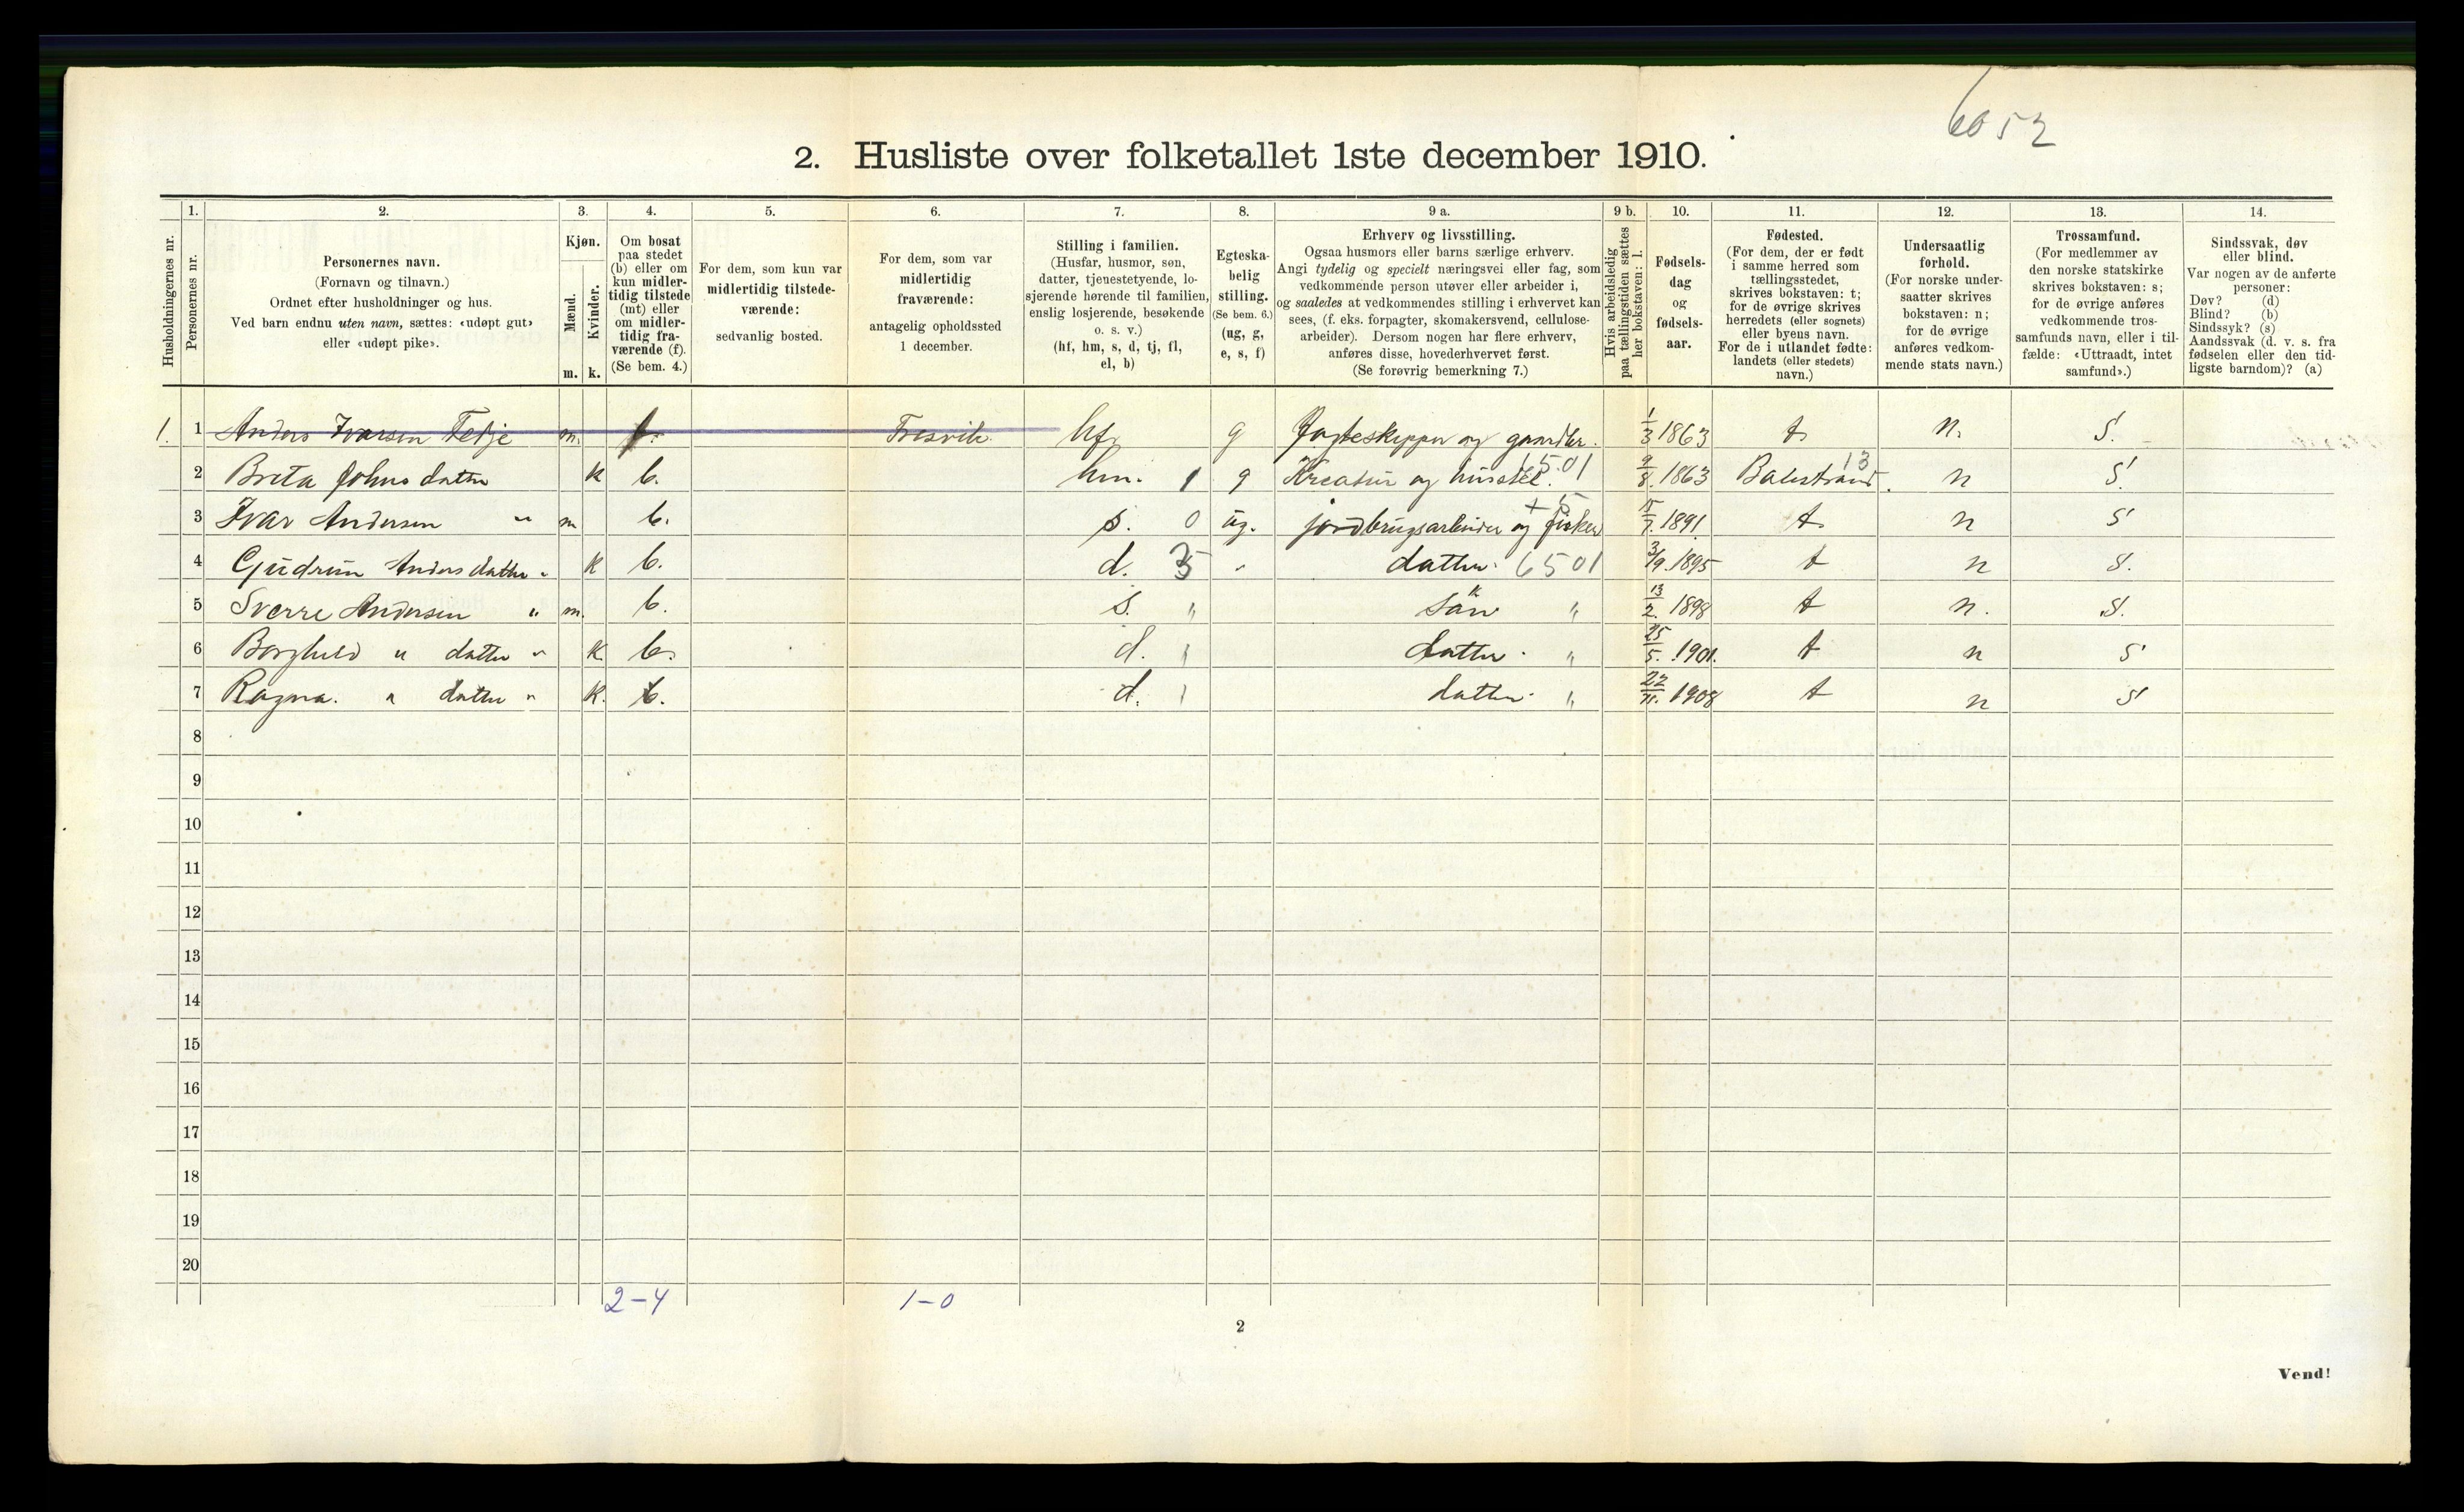 6052
2. Husliste over folketallet 1ste december 1910.
Husholdningernes nr.
1. Personernes nr.
2. Personernes navn.
(Fornavn og tilnavn.)
Ordnet efter husholdninger og hus.
Ved barn endnu uten navn, sættes: «udøpt gut»
eller «udøpt pike».
3. Kjøn.
Mænd. m.
Kvinder. k.
4. Om bosat
paa stedet
(b) eller om
kun midler-
tidig tilstede
(mt) eller
om midler-
tidig fra-
værende (f).
(Se bem. 4.)
5. For dem, som kun var
midlertidig tilstede-
værende:
sedvanlig bosted.
6. For dem, som var
midlertidig
fraværende:
antagelig opholdssted
1 december.
7. Stilling i familien.
(Husfar, husmor, søn,
datter, tjenestetyende, lo-
sjerende hørende til familien,
enslig losjerende, besøkende
o. s. v.)
(hf, hm, s, d, tj, fl,
el, b)
8. Egteska-
belig
stilling.
(Se bem. 6.)
(ug, g,
e, s, f)
9 a. Erhverv og livsstilling.
Ogsaa husmors eller barns særlige erhverv.
Angi tydelig og specielt næringsvei eller fag, som
vedkommende person utøver eller arbeider i,
og saaledes at vedkommendes stilling i erhvervet kan
sees, (f. eks. forpagter, skomakersvend, cellulose-
arbeider). Dersom nogen har flere erhverv,
anføres disse, hovederhvervet først.
(Se forøvrig bemerkning 7.)
9 b. Hvis arbeidsledig
paa tællingstiden sættes
her bokstaven: l.
10. Fødsels-
dag
og
fødsels-
aar.
11. Fødested.
(For dem, der er født
i samme herred som
tællingsstedet,
skrives bokstaven: t;
for de øvrige skrives
herredets (eller sognets)
eller byens navn.
For de i utlandet fødte:
landets (eller stedets)
navn.)
12. Undersaatlig
forhold.
(For norske under-
saatter skrives
bokstaven: n;
for de øvrige
anføres vedkom-
mende stats navn.)
13. Trossamfund.
(For medlemmer av
den norske statskirke
skrives bokstaven: s;
for de øvrige anføres
vedkommende tros-
samfunds navn, eller i til-
fælde: «Uttraadt, intet
samfund».)
14. Sindssvak, døv
eller blind.
Var nogen av de anførte
personer:
Døv? (d)
Blind? (b)
Sindssyk? (s)
Aandssvak (d. v. s. fra
fødselen eller den tid-
ligste barndom)? (a)
1. 1 Anders Ivarsen Fetje m. f. Fresvik hf. g Jagteskipper og gaardbr. 1/3 1863 t. n. S.
2 Brita Johnsdatter k b. hm. 1 g Kreatur og husstel. 1501 9/8 1863 Balestrand. 13 n S.
3 Ivar Andersen " m b. s. 0 ug. jordbrugsarbeider og fisker + 5 15/7 1891 t n S
4 Gudrun Andersdatter " k b. d. 3 - datter 6501 3/9 1895 t n S.
5 Sverre Andersen " m. b. s. " søn " 13/2 1898 t n. S.
6 Borghild " datter " k b. d. 1 datter " 25/5 1901. t n S
7 Ragna. " datter " k. b. d. 1 datter " 22/11 1908 t n S
8
9
10
11
12
13
14
15
16
17
18
19
20
2-4 1-0
2
Vend!